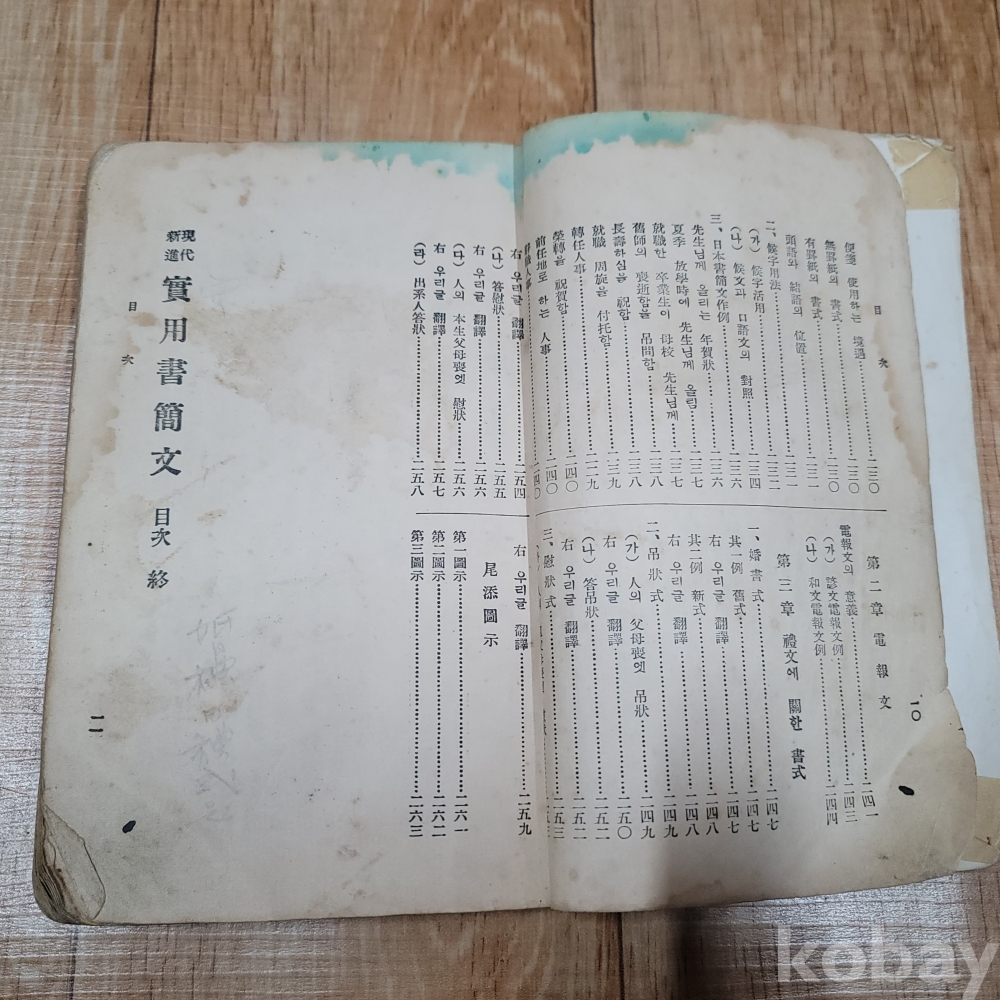 目 次
便箋 使用하는 境遇……二三〇
無罫紙의 書式……二三〇
有罫紙의 書式……二三一
頭語와 結語의 位置……二三一
二、候字用法……二三二
(가) 候字活用……二三四
(나) 候文과 口語文의 對照……二三六
三、日本書簡文作例……二三六
先生님께 올리는 年賀狀……二三七
夏季 放學時에 先生님께 올림……二三七
就職한 卒業生이 母校 先生님께……二三八
舊師의 喪逝함을 吊問함……二三八
長壽하심을 祝合……二三九
就職 周旋을 付托함……二三九
轉任人事……二四〇
榮轉을 祝賀함……二四〇
前任地로 하는 人事……二四〇
第二章 電報文
電報文의 意義……二四一
(가) 諺文電報文例……二四三
(나) 和文電報文例……二四四
第三章 禮文에 關한 書式
一、婚書式……二四七
其一例 舊式……二四七
右 우리글 翻譯……二四八
其一例 新式……二四八
右 우리글 翻譯……二四九
二、吊狀式……二四九
(가) 人의 父母喪엣 吊狀……二五〇
右 우리글 翻譯……二五一
(나) 答吊狀……二五二
右 우리글 翻譯……二五二
三、慰狀式……二五三
一〇
右 우리글 翻譯……二五四
(나) 答慰狀……二五五
右 우리글 翻譯……二五六
(다) 人의 本生父母喪엣 慰狀……二五六
右 우리글 翻譯……二五七
(라) 出系人答狀……二五八
右 우리글 翻譯……二五九
尾添圖示
第一圖示……二六一
第二圖示……二六二
第三圖示……二六三
現代
新進
實用書簡文 目次 終
目 次
一一
kobay